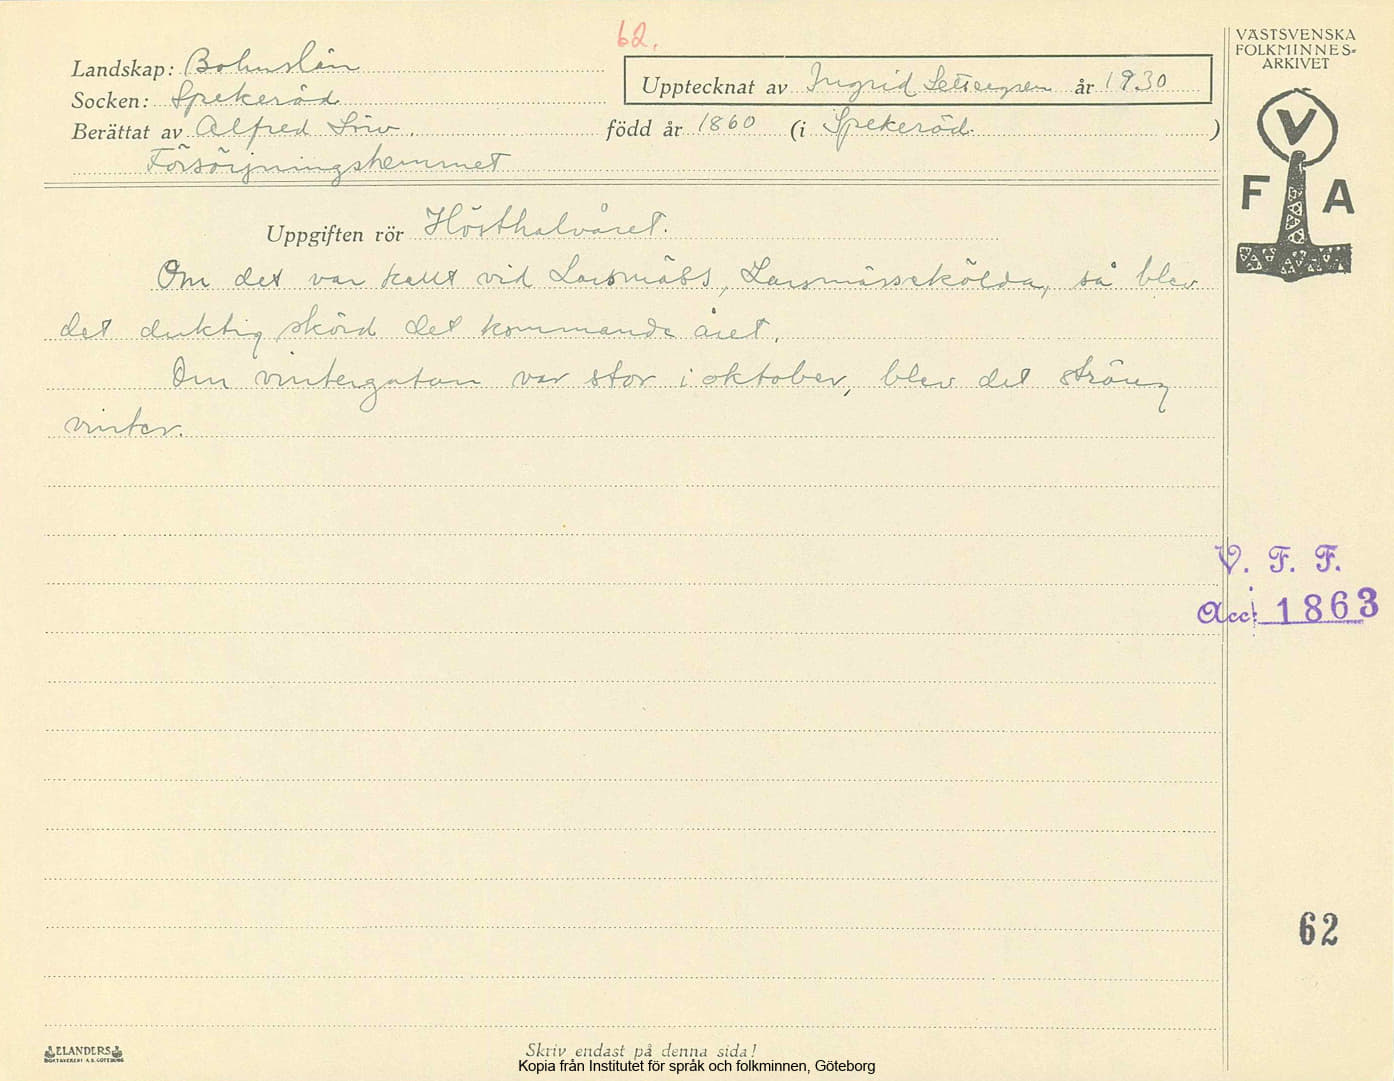 62.
VÄSTSVENSKA
FOLKMINNES-
ARKIVET
V
F A
Landskap: Bohuslän
Upptecknat av Ingrid Settergren år 1930
Socken: Spekeröd
Berättat av Alfred född år 1860 (i Spekeröd.)
Försörjningshemmet
Uppgiften rör Hösthalvåret.
Om det var kallt vid Larsmäss, Larsmässekölda, så blev
det duktig skörd det kommande året.
Om vintergatan var stor i oktober, blev det sträng
vinter.
V. F. F.
Acc: 1863
62
ELANDERS
BOKTRYCKERI A.B. GÖTEBORG
Skriv endast på denna sida!
Kopia från Institutet för språk och folkminnen, Göteborg